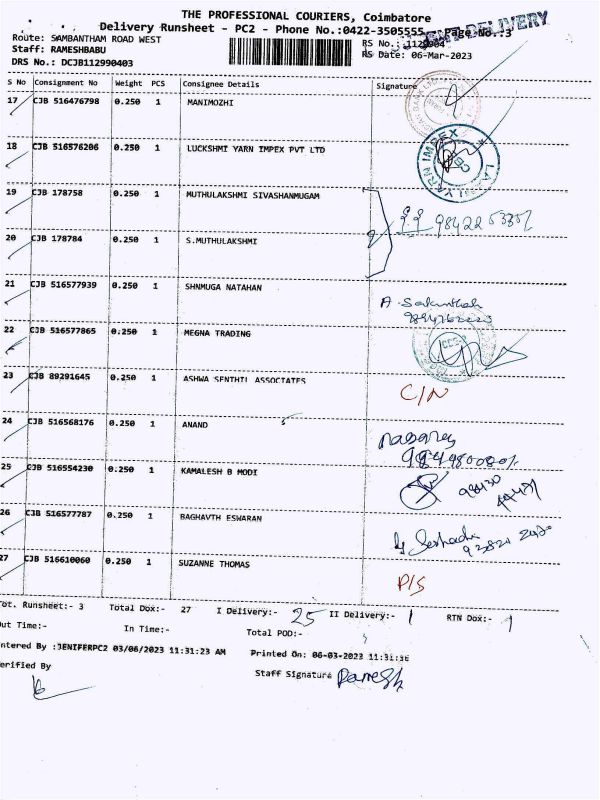 THE PROFESSIONAL COURIERS, Coimbatore
Delivery Runsheet - PC2 - Phone No.:0422-3505555 Page No.:3
DELIVERY
Route: SAMBANTHAM ROAD WEST
Staff: RAMESHBABU
RS Date: 06-Mar-2023
DRS No.: DCJB112990403
S No Consignment No Weight PCS Consignee Details Signature
17 CJB 516476798 0.250 1 MANIMOZHI
18 CJB 516576206 0.250 1 LUCKSHMI YARN IMPEX PVT LTD
19 CJB 178758 0.250 1 MUTHULAKSHMI SIVASHANMUGAM
20 CJB 178784 0.250 1 S.MUTHULAKSHMI
21 CJB 516577939 0.250 1 SHNMUGA NATAHAN
22 CJB 516577865 0.250 1 MEGNA TRADING
23 CJB 89291645 0.250 1 ASHWA SENTHIL ASSOCIATES C/N
24 CJB 516568176 0.250 1 ANAND
25 CJB 516554230 0.250 1 KAMALESH B MODI
26 CJB 516577787 0.250 1 BAGHAVTH ESWARAN
27 CJB 516610060 0.250 1 SUZANNE THOMAS P/S
Tot. Runsheet:- 3 Total Dox:- 27 I Delivery:- 25 II Delivery:- 1 RTN Dox:- 1
Out Time:- In Time:- Total POD:-
ntered By :JENIFERPC2 03/06/2023 11:31:23 AM Printed On: 06-03-2023 11:31:36
erified By Staff Signature Ramesh